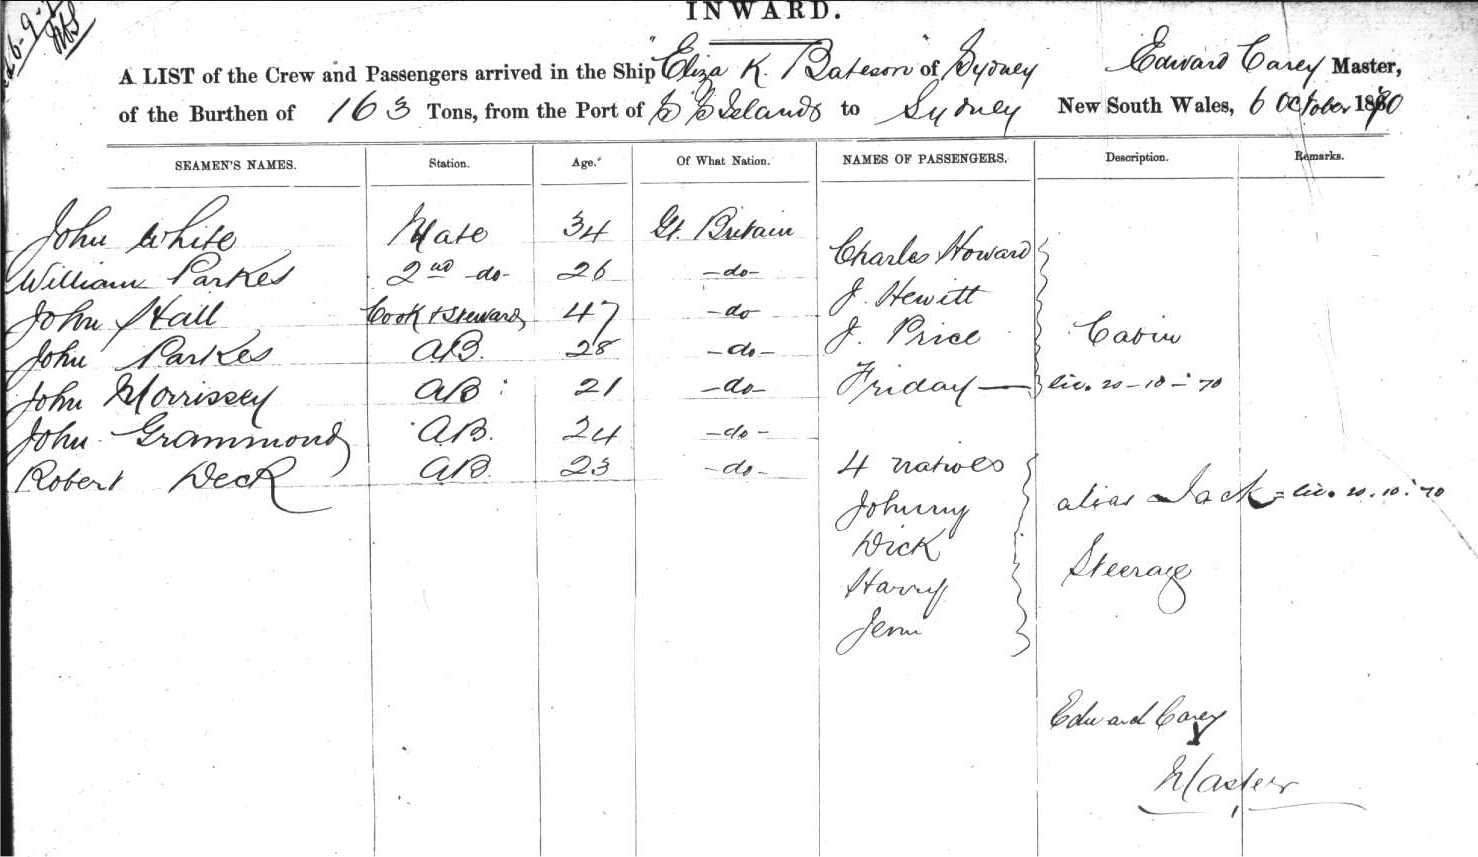 INWARD.
A LIST of the Crew and Passengers arrived in the Ship "Eliza K. Bateson" of Sydney Edward Carey Master,
of the Burthen of 163 Tons, from the Port of S S Islands to Sydney New South Wales, 6 October 1870
SEAMEN'S NAMES. Station. Age. Of What Nation. NAMES OF PASSENGERS. Description. Remarks.
John White Mate 34 Gt. Britain
Charles Howard
William Parkes 2nd -do- 26 -do-
J. Hewitt
John Hall Cook & Steward 47 -do-
J. Price Cabin
John Parkes AB. 28 -do-
John Morrissey AB 21 -do- Friday — lic. 20-10-'70
John Grammond AB. 24 -do-
Robert Deck AB. 23 -do- 4 natives
Johnny alias Jack = lic. 20.10.'70
Dick
Steerage
Harry
Jem
Edward Carey
Master